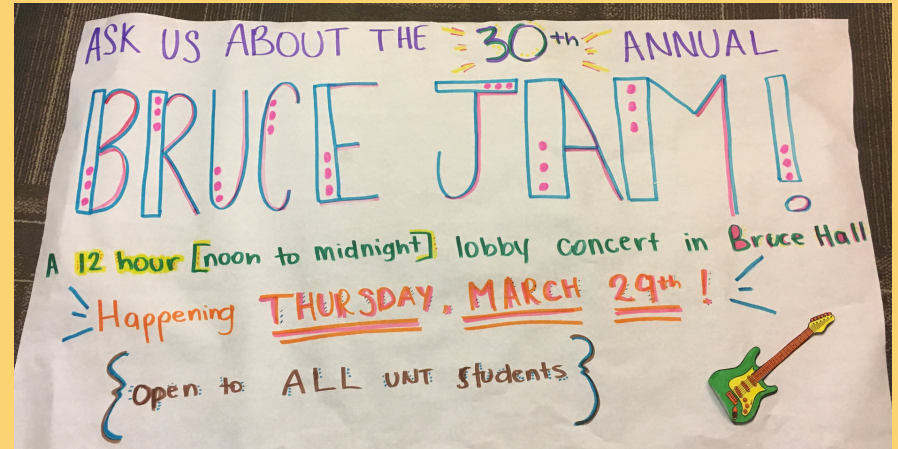 ASK US ABOUT THE 30th ANNUAL
BRUCE JAM!
A 12 hour [noon to midnight] lobby concert in Bruce Hall
Happening THURSDAY. MARCH 29th!
{Open to ALL UNT students}